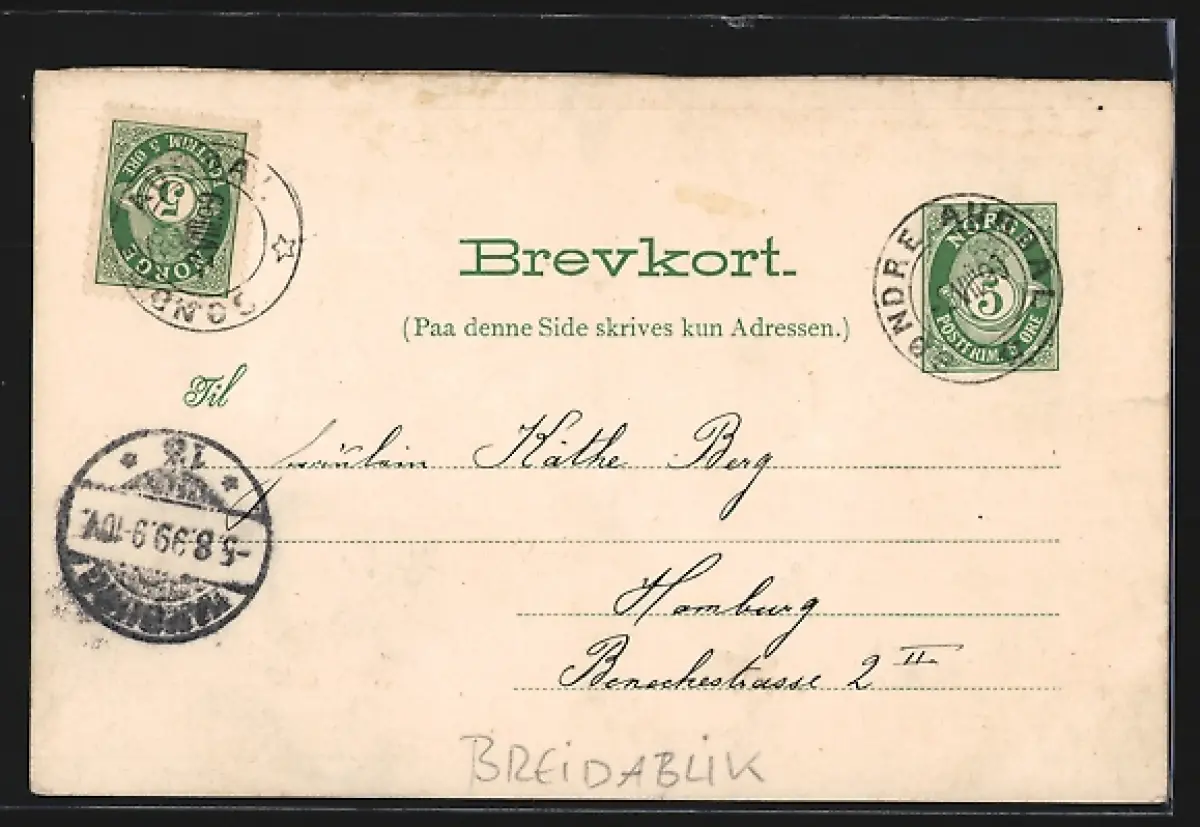 NORGE
POSTFRIM. 5 ØRE
5
SØNDRE AURDAL
NORGE
POSTFRIM. 5 ØRE
5
Brevkort.
(Paa denne Side skrives kun Adressen.)
Til
Fräulein Käthe Berg
-5.8.99.9-10V.
Hamburg
Beneckestrasse 2 II
BREIDABLIK